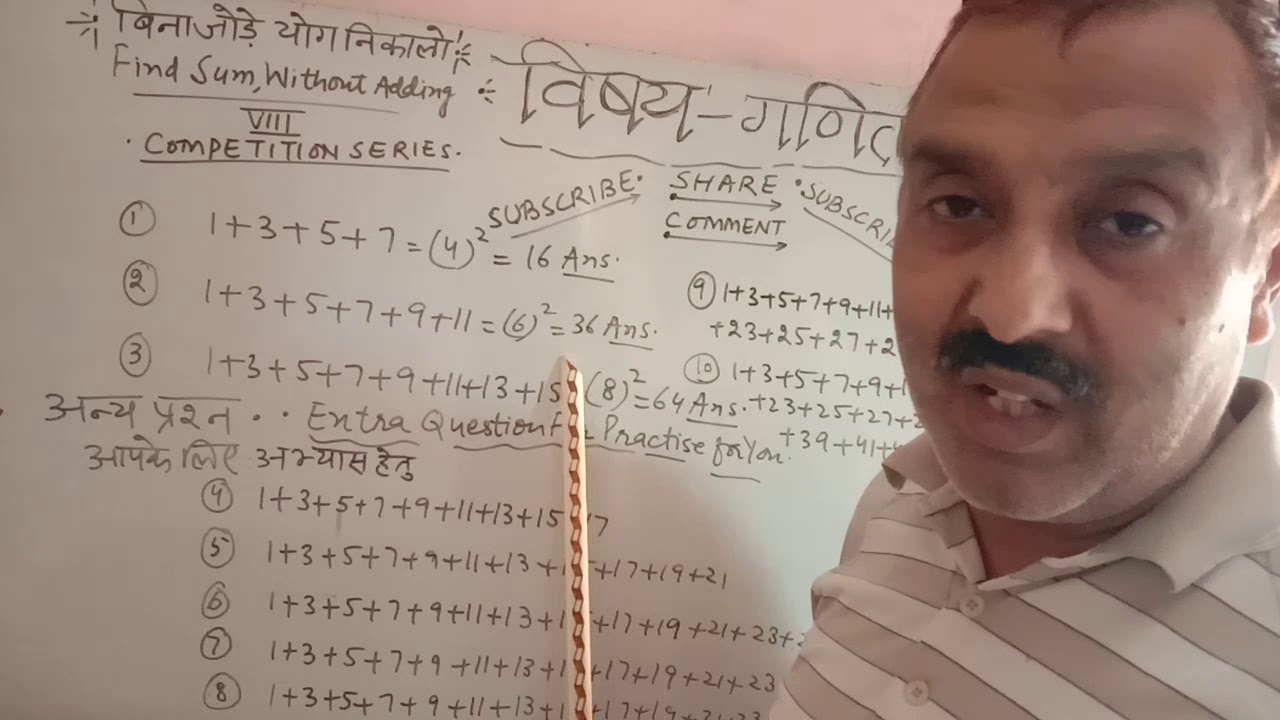 बिना जोड़े योग निकालो
Find Sum, Without Adding
VIII
COMPETITION SERIES.
विषय - गणित
SUBSCRIBE
SHARE
COMMENT
① 1+3+5+7=(4)²=16 Ans.
② 1+3+5+7+9+11=(6)²=36 Ans.
③ 1+3+5+7+9+11+13+15 (8)²=64 Ans.
अन्य प्रश्न . . Extra Question Practise for You.
आपके लिए अभ्यास हेतु
④ 1+3+5+7+9+11+13+15 17
⑤ 1+3+5+7+9+11+13+ +17+19+21
⑥ 1+3+5+7+9+11+13+ +17+19+21+23+
⑦ 1+3+5+7+9+11+13+ +17+19+21+23
⑧ 1+3+5+7+9+11+13+ +17+19+21+23
⑨ 1+3+5+7+9+11+
+23+25+27+
⑩ 1+3+5+7+9+
+23+25+27+
+39+41+